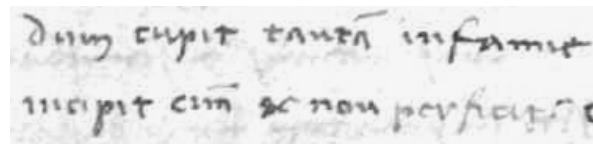 Dum cupit tantā infamie
incipit cum̄ &c non perficit